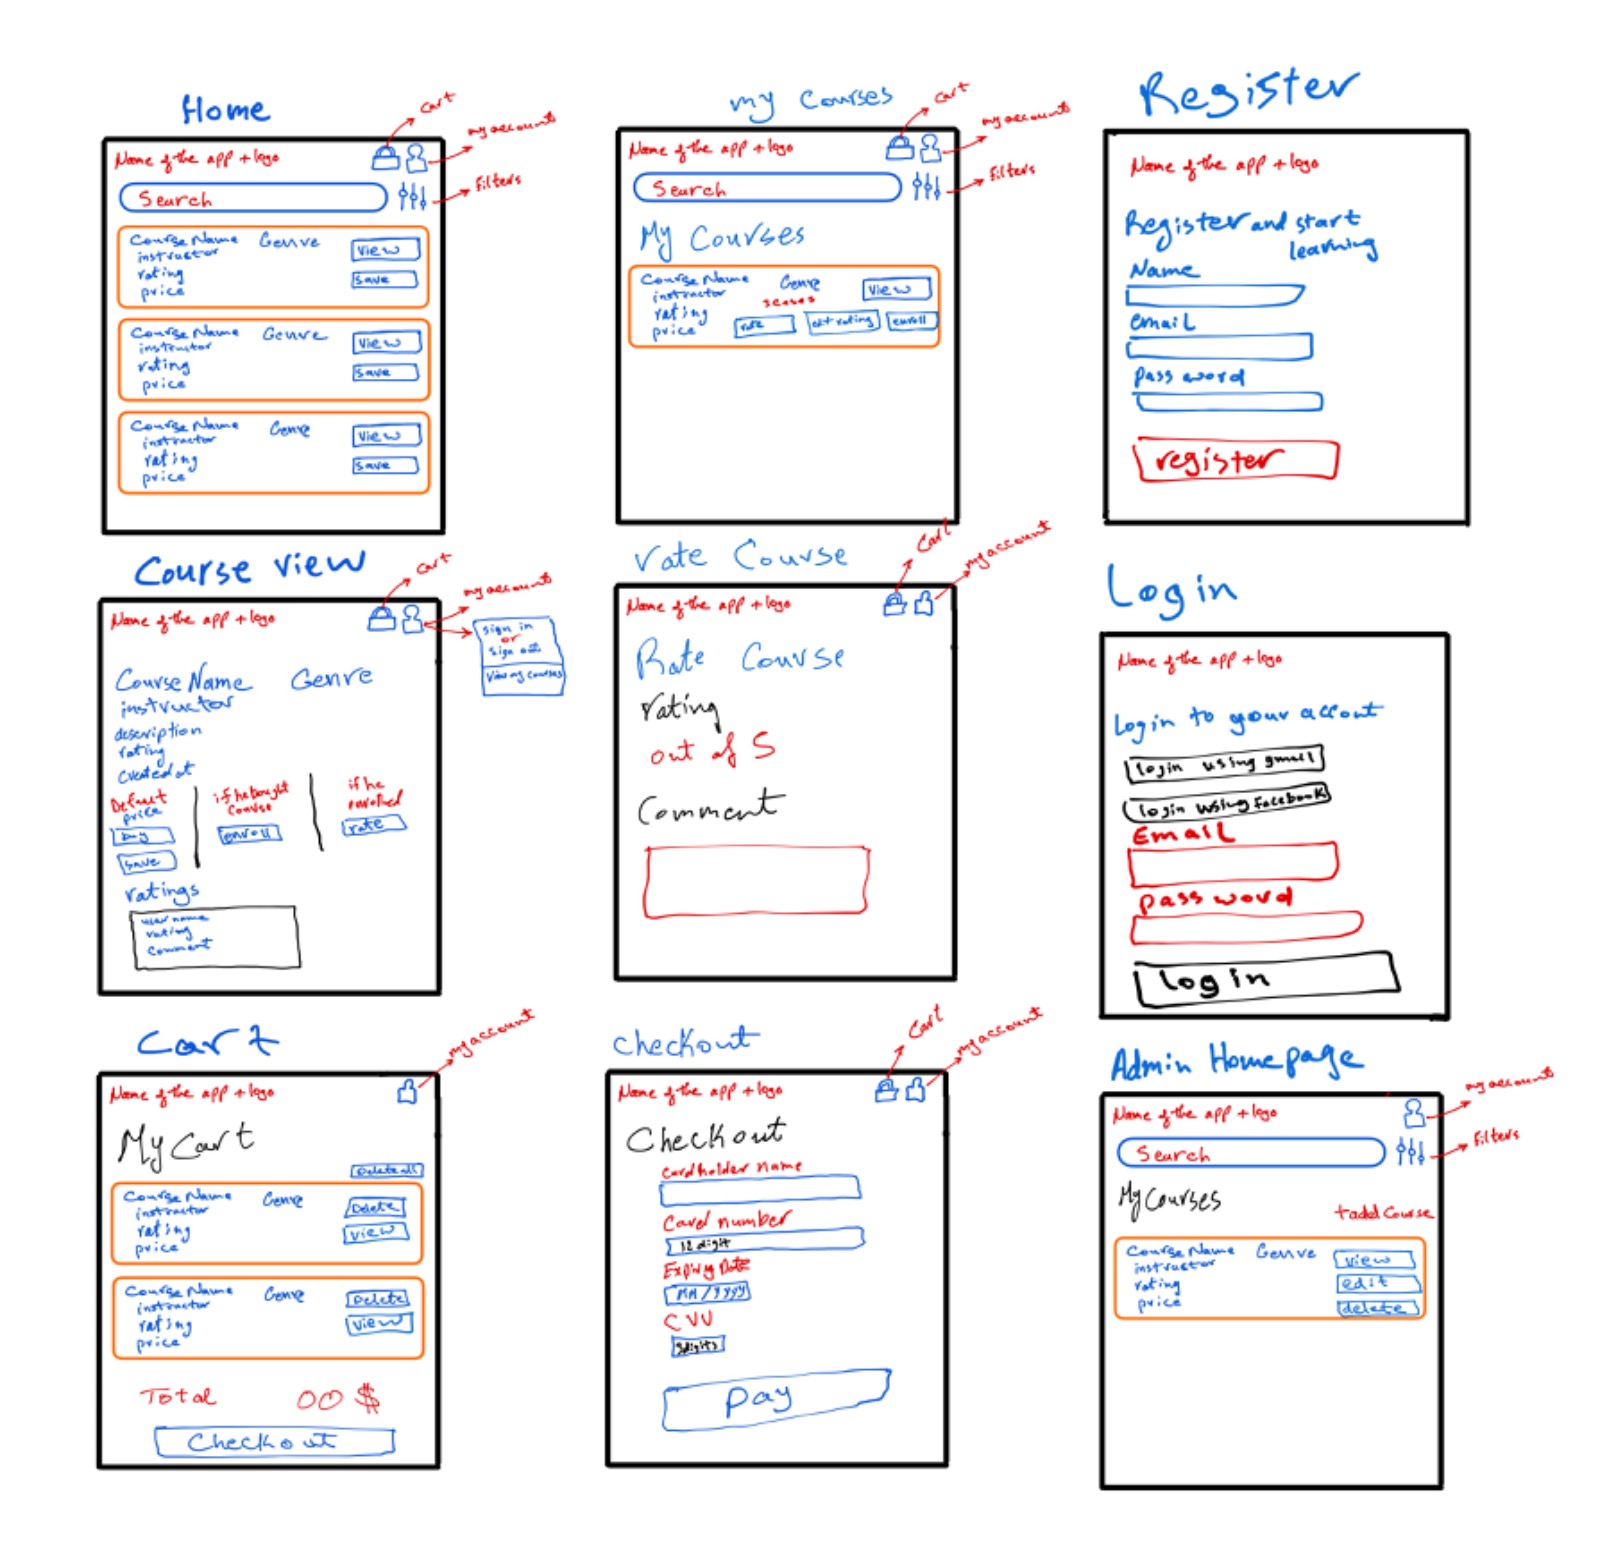 Home
cart
my account
Name of the app + logo
Search
filters
Course Name Genre
instructor
rating
price
view
save
Course Name Genre
instructor
rating
price
view
save
Course Name Genre
instructor
rating
price
view
save
my Courses
cart
my account
Name of the app + logo
Search
filters
My Courses
Course Name Genre
instructor
rating
price
view
rate
edit rating
enroll
Register
Name of the app + logo
Register and start
learning
Name
email
password
register
Course view
cart
my account
Name of the app + logo
sign in
or
sign out
view my courses
Course Name Genre
instructor
description
rating
Created at
Default
price
buy
save
if he bought
Course
enroll
if he
enrolled
rate
ratings
user name
rating
comment
rate Course
Cart
my account
Name of the app + logo
Rate Course
rating
out of 5
Comment
Login
Name of the app + logo
Login to your accont
login using gmail
login using facebook
Email
password
login
Cart
my account
Name of the app + logo
My Cart
Delete all
Course Name Genre
instructor
rating
price
Delete
view
Course Name Genre
instructor
rating
price
Delete
view
Total 00 $
Checkout
checkout
Cart
my account
Name of the app + logo
Checkout
Cardholder name
Card number
12 digit
Expiry Date
MM / yyyy
CVV
3digits
Pay
Admin Homepage
my account
Name of the app + logo
Search
filters
My Courses
+add Course
Course Name Genre
instructor
rating
price
view
edit
delete